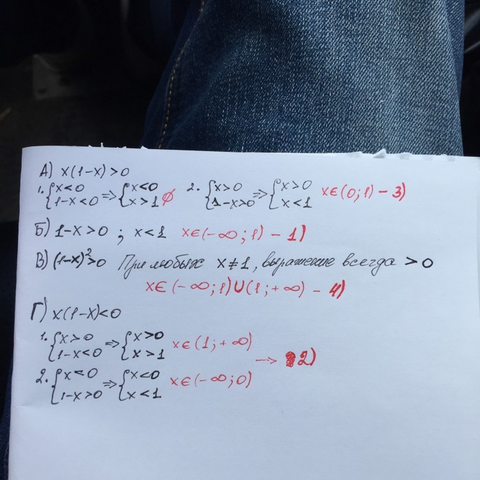 А) x(1-x)>0
1. {x<0 1-x<0 => {x<0 x>1 ∅ 2. {x>0 1-x>0 => {x>0 x<1 x∈(0;1) - 3)
Б) 1-x>0 ; x<1 x∈(-∞;1) - 1)
В) (1-x)²>0 При любых x≠1, выражение всегда >0
x∈(-∞;1)∪(1;+∞) - 4)
Г) x(1-x)<0
1. {x>0 1-x<0 => {x>0 x>1 x∈(1;+∞)
→ 2)
2. {x<0 1-x>0 => {x<0 x<1 x∈(-∞;0)